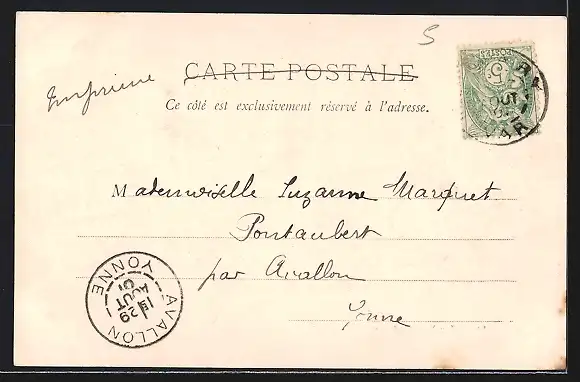 5
CARTE POSTALE
Imprimé
Ce côté est exclusivement réservé à l'adresse.
Mademoiselle Suzanne Marquet
Pontaubert
par Avallon
Yonne
AOUT
VAR
AVALLON
YONNE
1E
29
AOUT
01